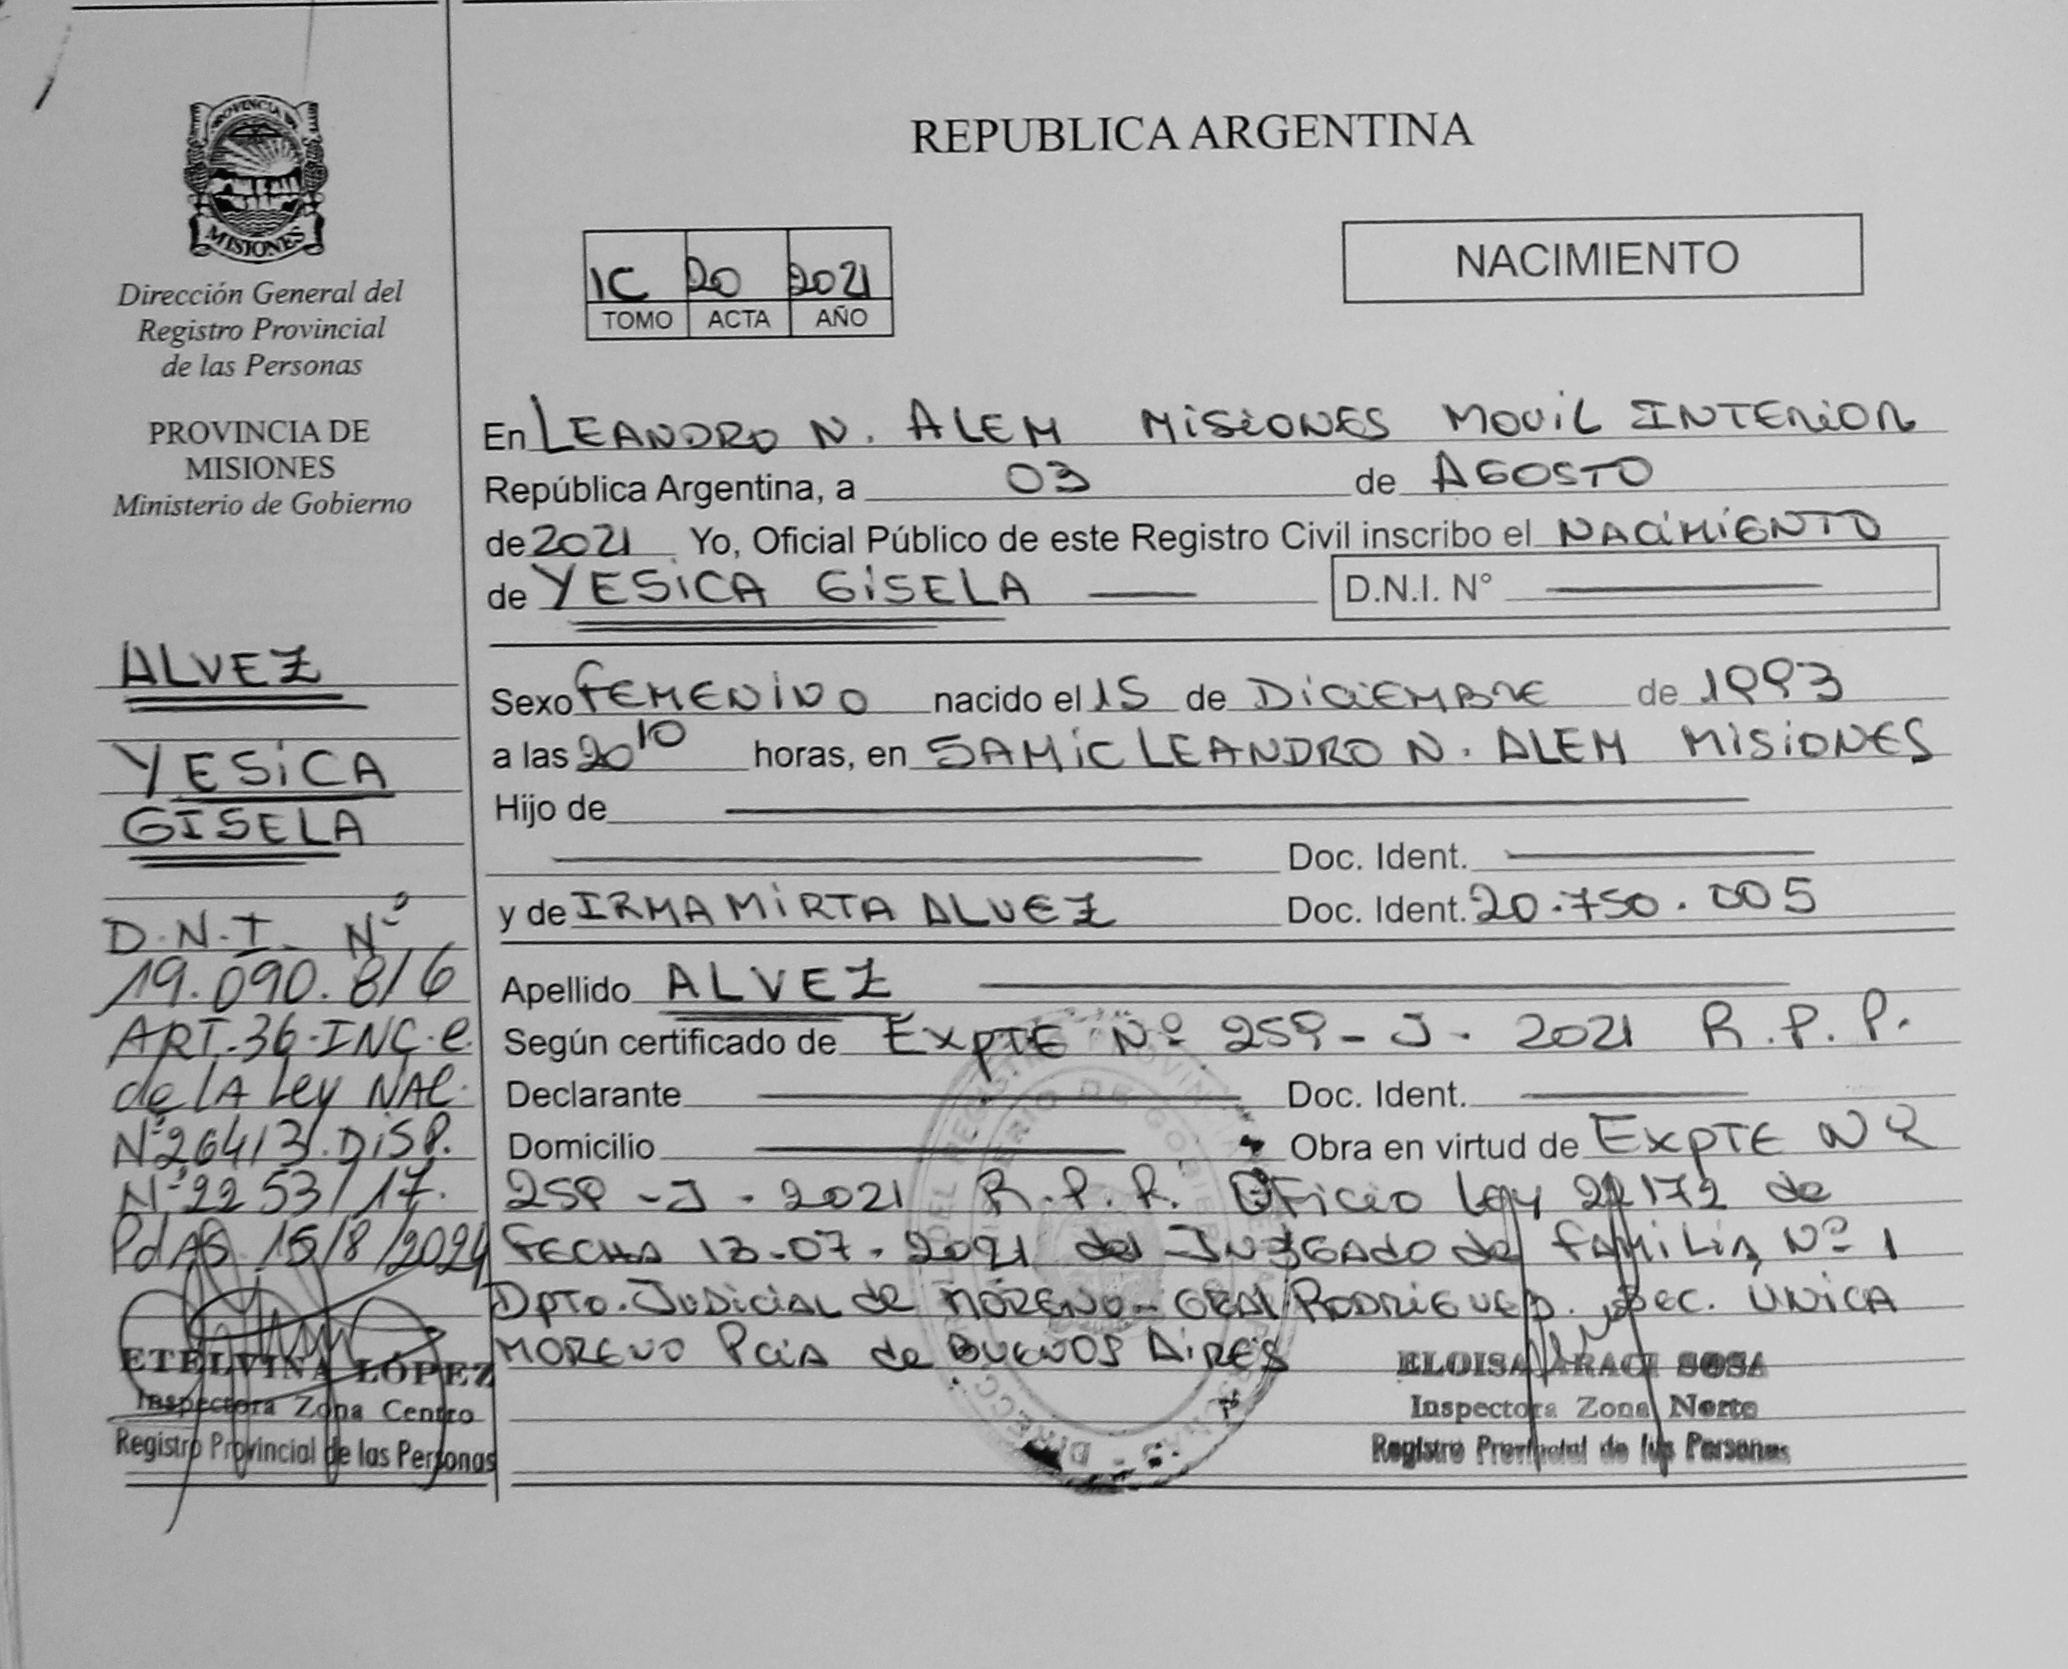 PROVINCIA DE
MISIONES
Dirección General del
Registro Provincial
de las Personas
PROVINCIA DE
MISIONES
Ministerio de Gobierno
ALVEZ
YESICA
GISELA
D.N.I. Nº
19.090.816
ART.36.INC.e.
de lA Ley NAC.
Nº26413.DiSP.
Nº2253/17.
PdAS 15/8/2024
ETELVINA LÓPEZ
Inspectora Zona Centro
Registro Provincial de las Personas
REPUBLICA ARGENTINA
IC 20 2021
TOMO ACTA AÑO
NACIMIENTO
En LEANDRO N. ALEM MISIONES MOVIL INTERIOR
República Argentina, a 03 de AGOSTO
de 2021 Yo, Oficial Público de este Registro Civil inscribo el NACIMIENTO
de YESICA GISELA D.N.I. N°
Sexo FEMENINO nacido el 15 de DICIEMBRE de 1993
a las 20 10 horas, en SAMIC LEANDRO N. ALEM MISIONES
Hijo de
Doc. Ident.
y de IRMA MIRTA ALVEZ Doc. Ident. 20.750.005
Apellido ALVEZ
Según certificado de EXPTE Nº 259-J-2021 R.P.P.
Declarante Doc. Ident.
Domicilio Obra en virtud de EXPTE Nº
259-J-2021 R.P.P. OFICIO Ley 22172 de
FECHA 13-07-2021 del JUZGADO de FAMILIA Nº 1
DPTO. JUDICIAL de MORENO-GRAL RODRIGUEZ. SEC. ÚNICA
MORENO PCIA de BUENOS AIRES
ELOISA ARACI SOSA
Inspectora Zona Norte
Registro Provincial de las Personas